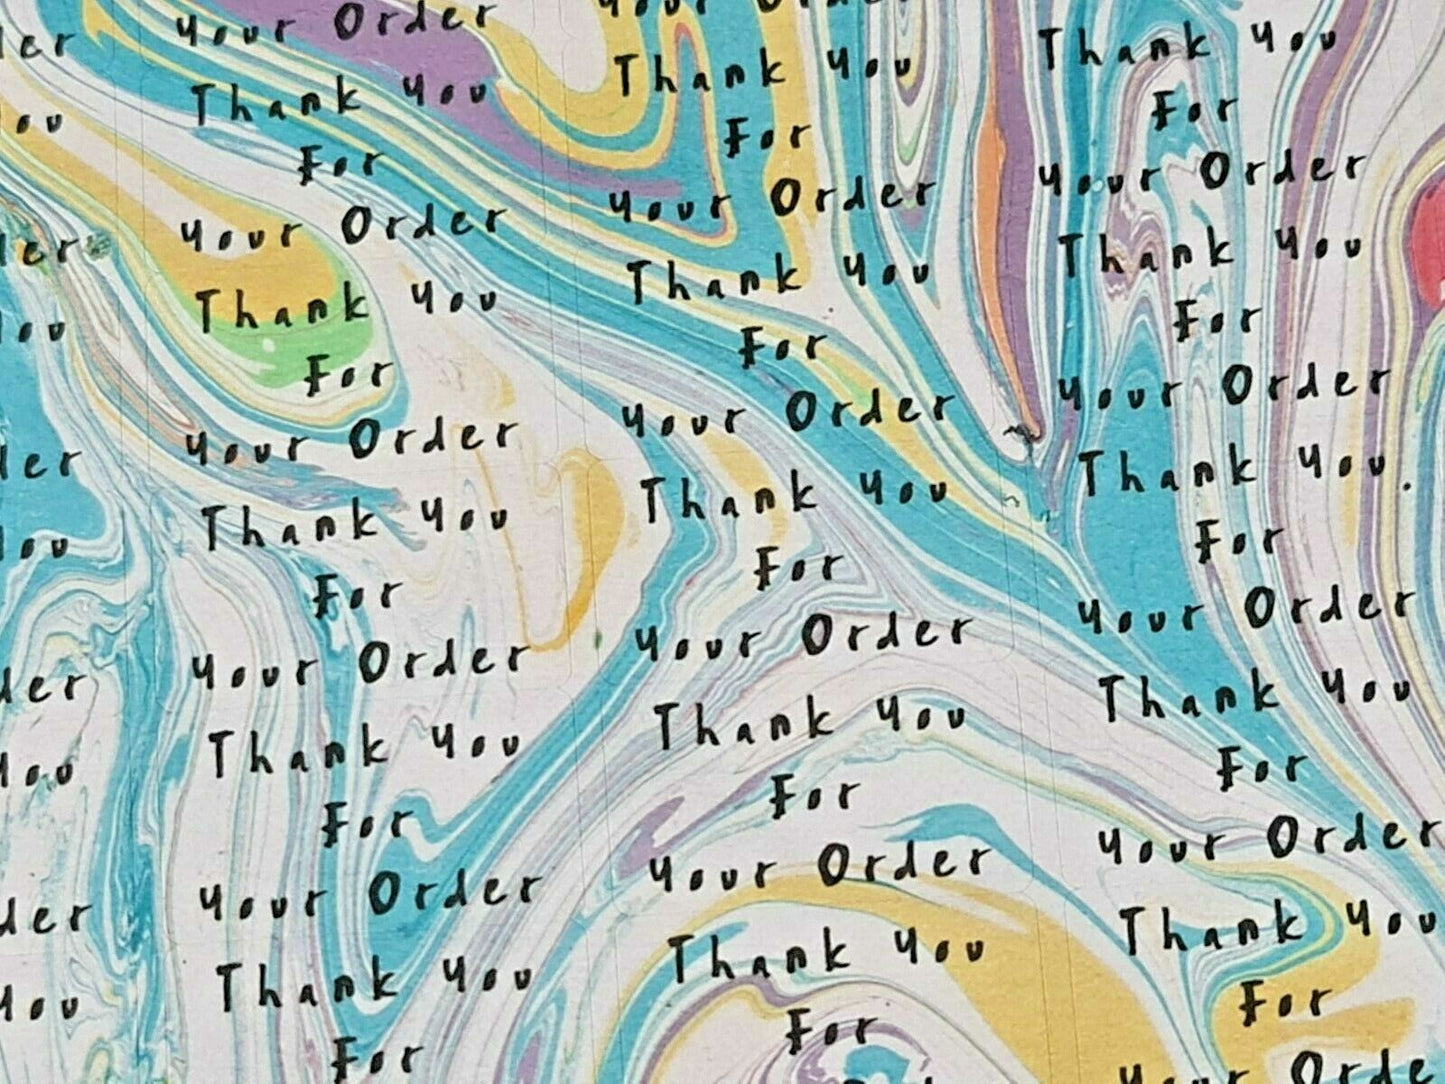 Your Order
Thank You
For
Your Order
Thank You
For
Your Order
Thank You
For
Your Order
Thank You
For
Your Order
Thank You
For
Thank You
For
Your Order
Thank You
For
Your Order
Thank You
For
Your Order
Thank You
For
Your Order
Thank You
For
Thank You
For
Your Order
Thank You
For
Your Order
Thank You.
For
Your Order
Thank You
For
Your Order
Thank You
For
Your Orde